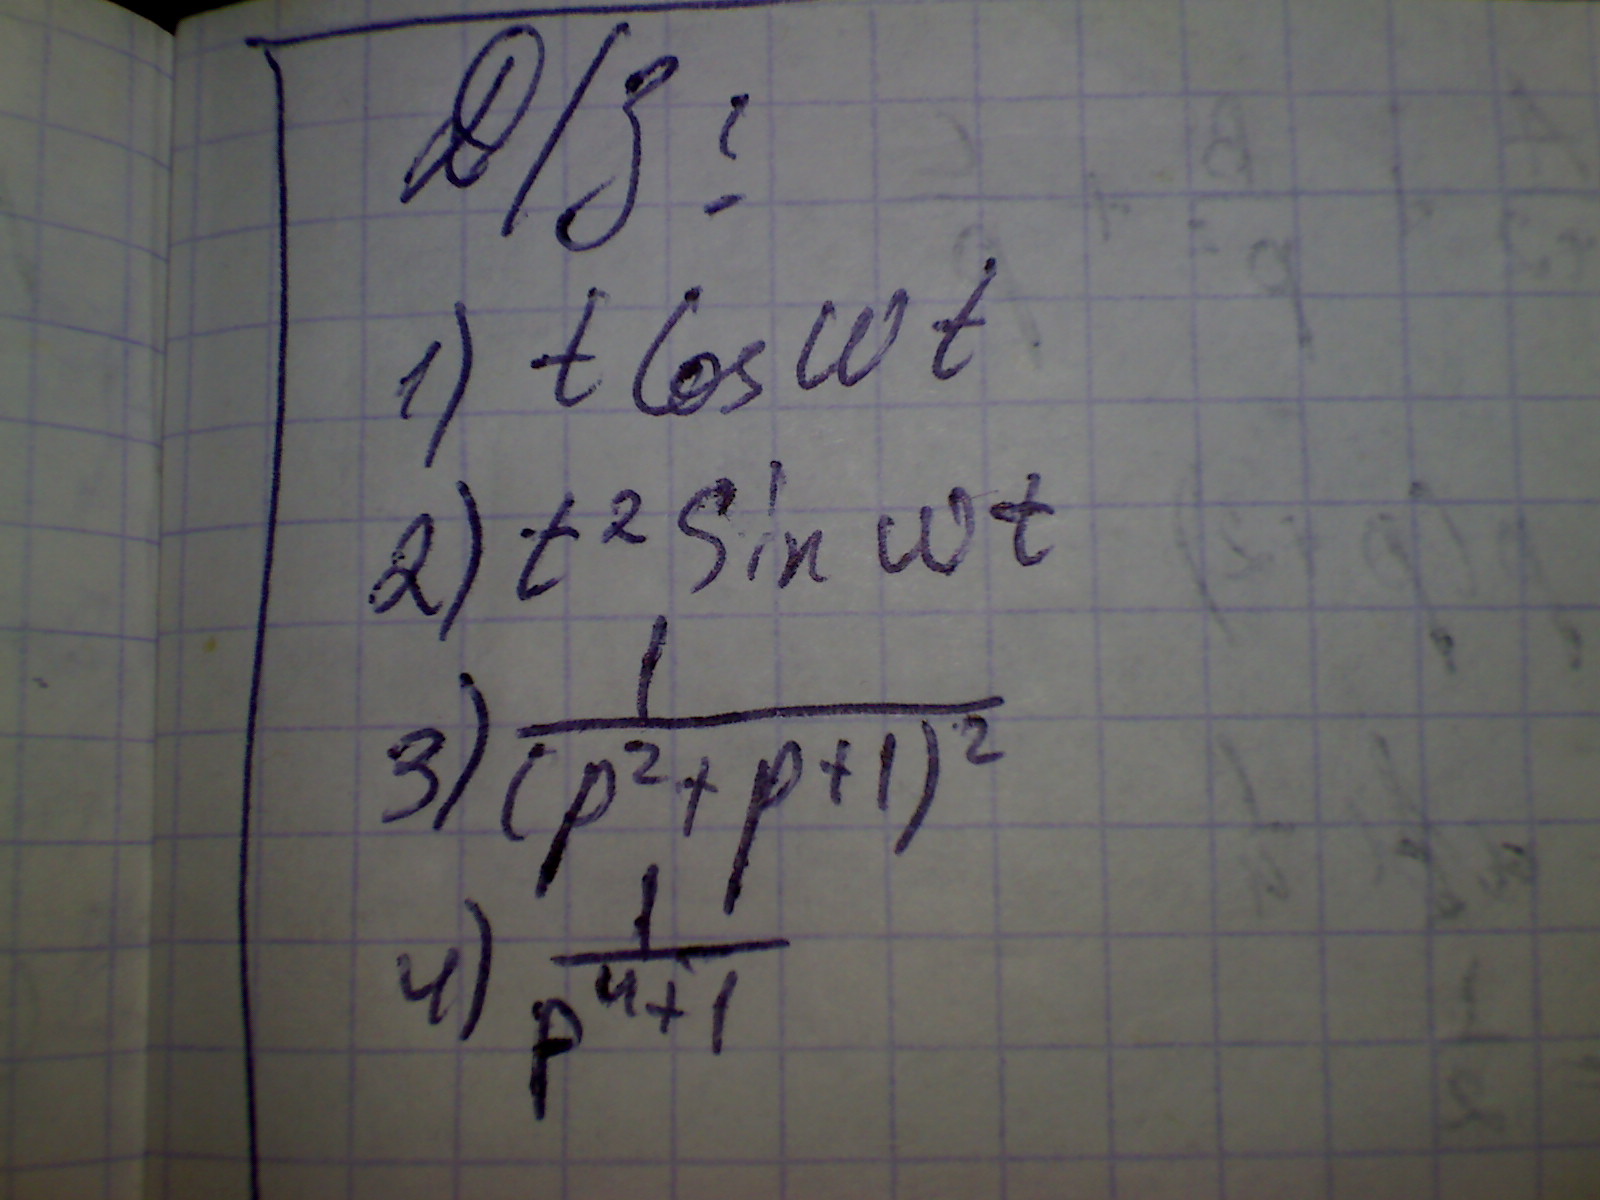 Д/з:
1) t cos wt
2) t² sin wt
3) 1/(p²+p+1)²
4) 1/p⁴+1